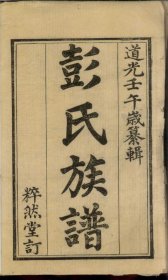 道光壬午歲纂輯
彭氏族譜
粹然堂訂